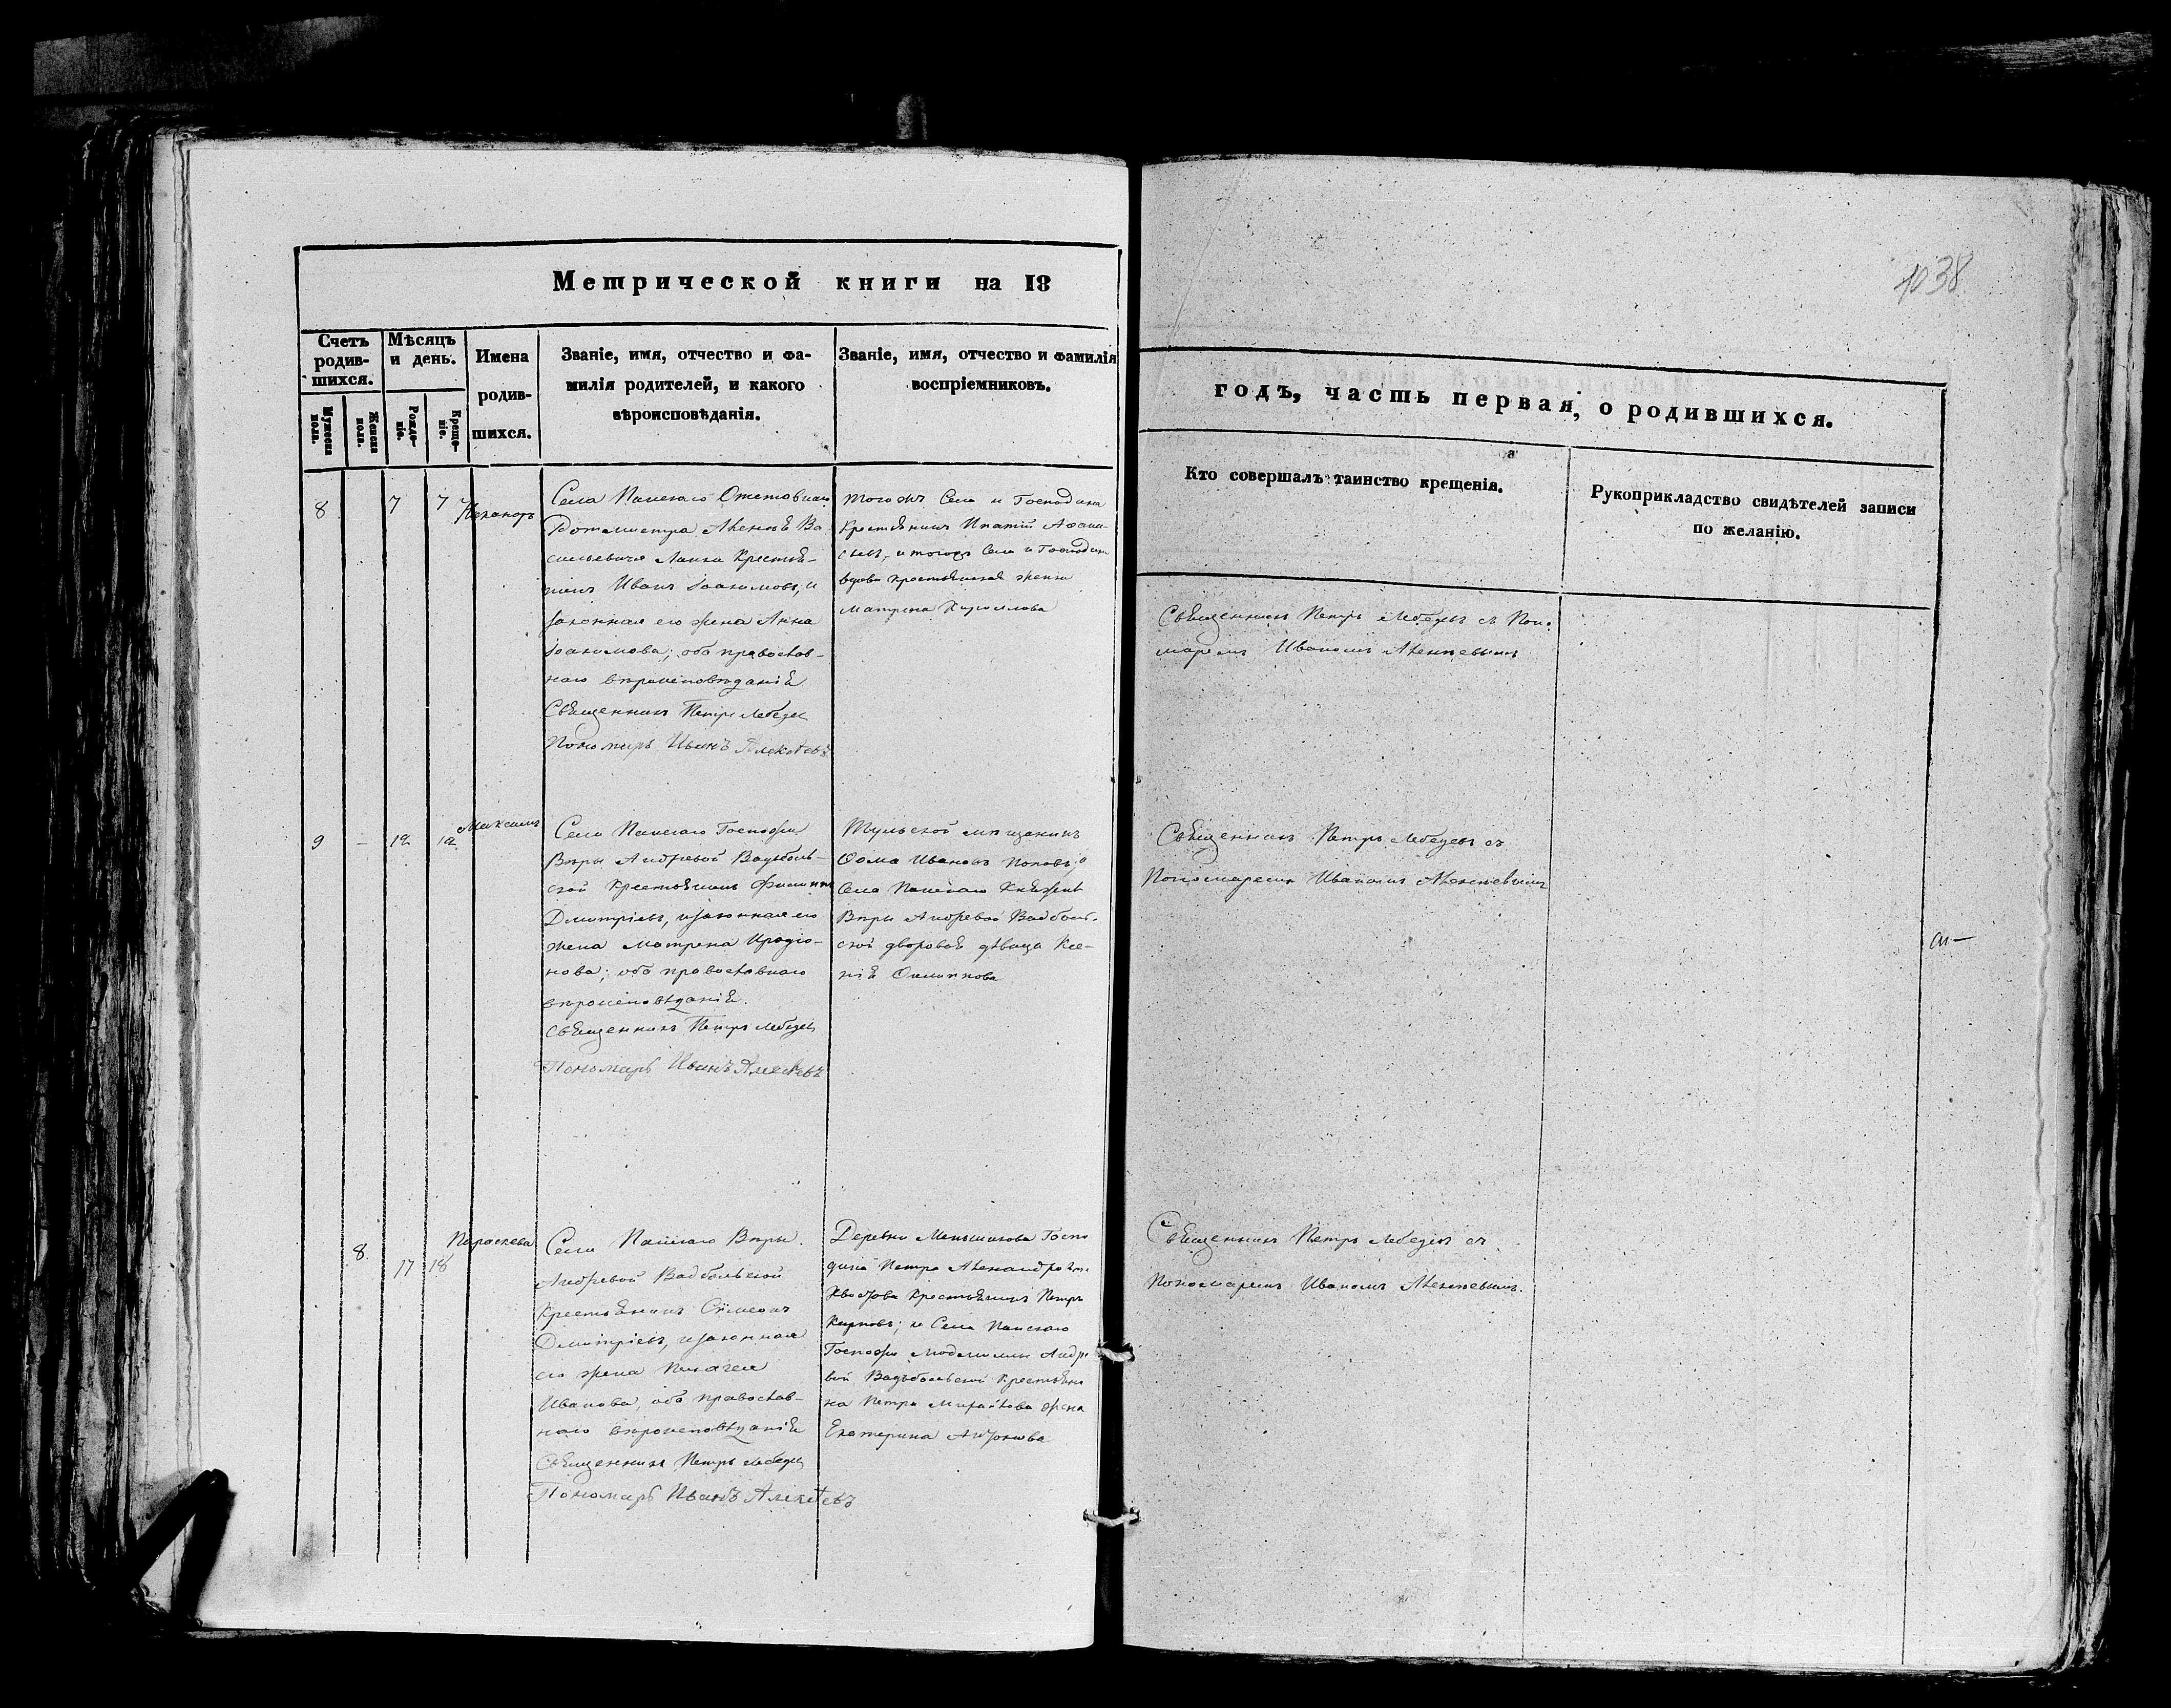 Метрической книги на 18
Счетъ родив-шихся.
Мѣсяцъ и день.
Имена родив-шихся.
Званіе, имя, отчество и фа-
милія родителей, и какого
вѣроисповѣданія.
Званіе, имя, отчество и фамилія
воспріемниковъ.
Мужеска пола.
Женска пола.
Рожде-ніе.
Креще-ніе.
8 7 7 Никаноръ
Села Панскаго Отставнаго
Ротмистра Алексѣя Ва-
сильевича Лачина Крестья-
нинъ Иванъ Іоакимовъ, и
законная его жена Анна
Іоакимова; оба православ-
наго вѣроисповѣданія
Священникъ Петръ Лебедев
Пономарь Иванъ Алексѣевъ
того жъ Села и Господина
Крестьянинъ Ипатій Афана-
сьевъ, и тогожъ Села и Господина
вдова крестьянская жена
Матрена Кириллова
9 - 12 12 Максимъ
Села Панскаго Госпожи
Вѣры Андревой Вадбаль-
ской Крестьянинъ Филиппъ
Дмитріевъ, и законная его
жена Матрена Иродіо-
нова; оба православнаго
вѣроисповѣданія.
Священникъ Петръ Лебедев
Пономарь Иванъ Алексѣевъ
Тульской мѣщанинъ
Фома Ивановъ Поповъ; и
Села Панскаго Княжны
Вѣры Андревой Вадболь-
ской дворовая дѣвица Ксе-
нія Филиппова
8. 17 18 Параскева
Села Панскаго Вѣры
Андревой Вадбольской
Крестьянинъ Сѵмеонъ
Дмитріевъ, и законная
его жена Пелагея
Иванова, оба православ-
наго вѣроисповѣданія
Священникъ Петръ Лебедев
Пономарь Иванъ Алексѣевъ
Деревни Меньшикова Госпо
дина Петра Александров.
Крестьянинъ Петръ
Карповъ; и Села Панскаго
Госпожи Людмилы Андре
вой Вадбольской Крестьяни
на Петра Михайлова жена
Екатерина Антонова
1038
годъ, часть первая, о родившихся.
Кто совершалъ таинство крещенія.
Рукоприкладство свидѣтелей записи
по желанію.
Священникъ Петръ Лебедевъ съ Поно-
маремъ Иваномъ Алексѣевымъ
Священникъ Петръ Лебедевъ съ
Пономаремъ Иваномъ Алексѣевымъ
Священникъ Петръ Лебедевъ съ
Пономаремъ Иваномъ Алексѣевымъ.